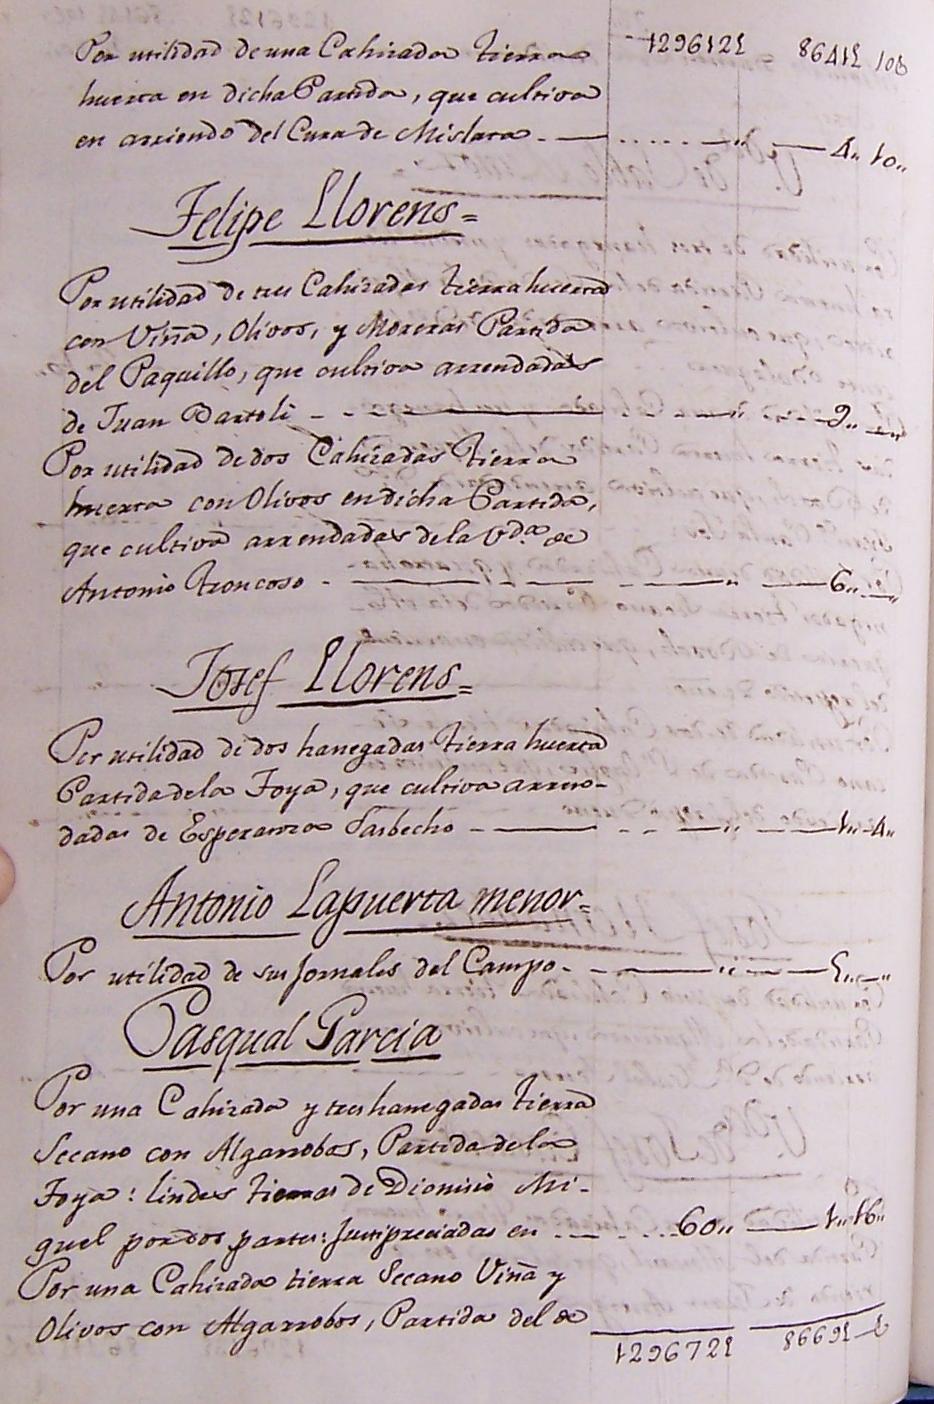 129612£ 8641£ 10$
Por utilidad de una Cahizada tierra
huerta en dicha Partida, que cultiva
en arriendo del Cura de Mislata - 4,, 10,,
Felipe Llorens =
Por utilidad de tres Cahizadas tierra huerta
con Viña, Olivos, y Moreras Partida
del Paquillo, que cultiva arrendadas
de Juan Bartoli - 9,,
Por utilidad de dos Cahizadas tierra
huerta con Olivos en dicha Partida,
que cultiva arrendadas de la V.da de
Antonio Troncoso - 6,,
Josef Llorens =
Por utilidad de dos hanegadas tierra huerta
Partida de la Foya, que cultiva arren-
dadas de Esperanza Sarbecho - 1,, 4,,
Antonio Lapuerta menor =
Por utilidad de sus Jornales del Campo - 5,,
Pasqual Garcia
Por una Cahizada y tres hanegadas tierra
Secano con Algarrobos, Partida de la
Foya: lindes tierras de Dionisio Mi-
guel por dos partes: Justipreciadas en 60,, 1,, 16,,
Por una Cahizada tierra Secano Viña y
Olivos con Algarrobos, Partida del de
129672£ 8669£